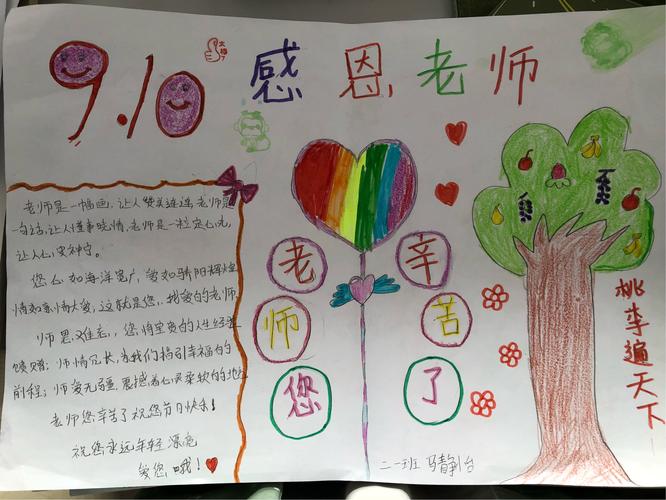 9.10
太棒了
感恩老师
老师是一幅画，让人赞美连连，老师是
一句话，让人懂事晓情，老师是一粒定心丸，
让人心安神宁。
您心如海洋宽广，爱如骄阳辉煌
情如亲情大爱，这就是您，我爱的老师，
师恩难忘，您将宝贵的人生经验
馈赠；师情冗长，为我们指引幸福的
前程；师爱无疆，震撼着心灵柔软的地
老师您辛苦了祝您节日快乐！
祝您永远年轻漂亮
爱您哦！
老师您
辛苦了
桃李遍天下
二一班